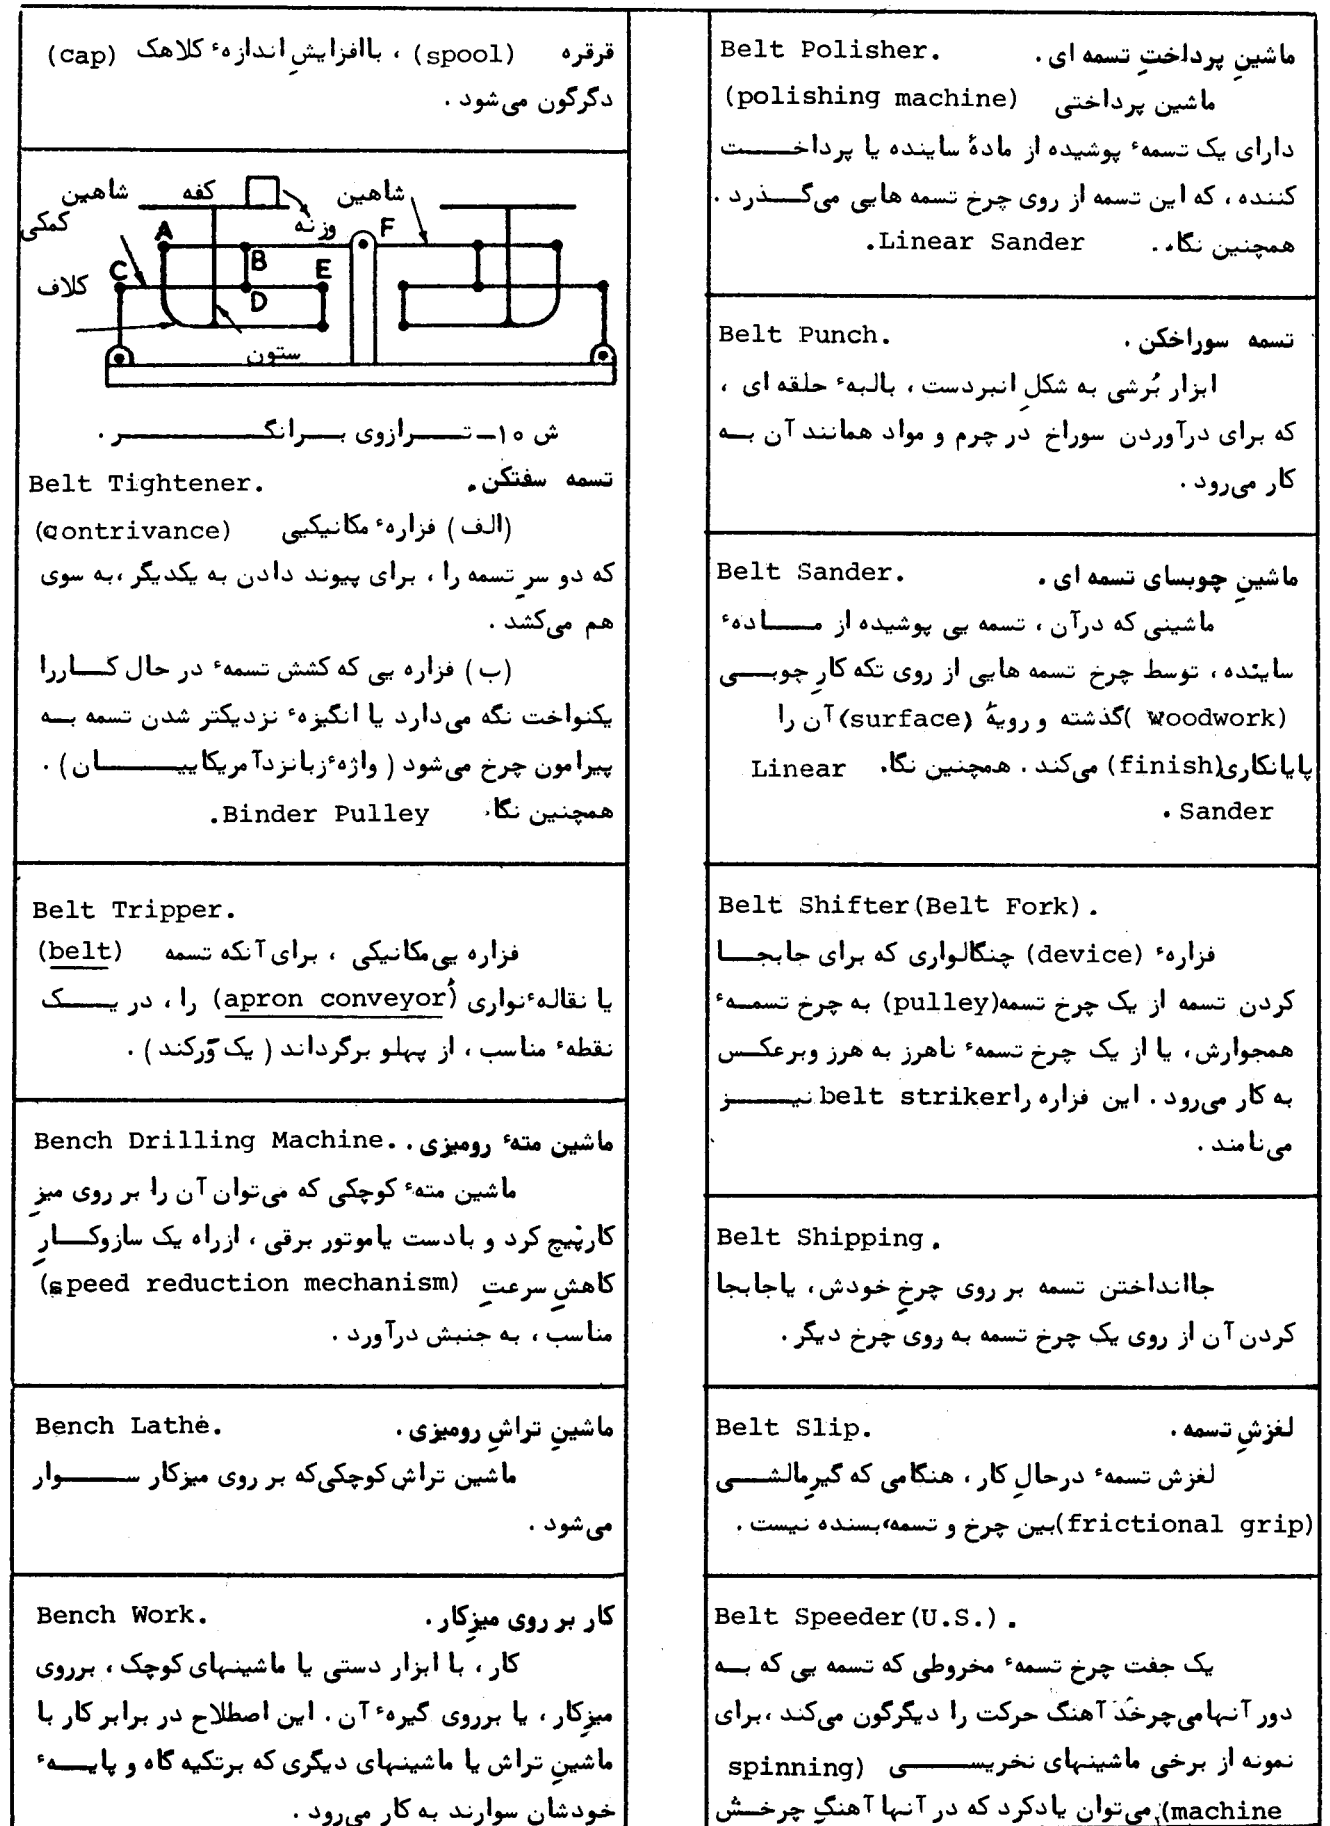 ماشینِ پرداختِ تسمه ای . Belt Polisher.
ماشین پرداختی (polishing machine)
دارای یک تسمهٔ پوشیده از مادهٔ ساینده یا پرداخـــت
کننده ، که این تسمه از روی چرخ تسمه هایی می‌گـــذرد .
همچنین نگا. . Linear Sander.
تسمه سوراخکن . Belt Punch.
ابزار بُرشی به شکلِ انبردست ، بالبهٔ حلقه ای ،
که برای درآوردن سوراخ در چرم و مواد همانند آن بــه
کار می‌رود .
ماشینِ چوبسای تسمه ای . Belt Sander.
ماشینی که درآن ، تسمه یی پوشیده از مـــادهٔ
ساینده ، توسط چرخ تسمه هایی از روی تکه کارِ چوبـــی
(woodwork) گذشته و رویهٔ (surface) آن را
پایانکاری(finish) می‌کند . همچنین نگا. Linear
Sander .
Belt Shifter(Belt Fork).
فزارهٔ (device) چنگالواری که برای جابجـــا
کردن تسمه از یک چرخ تسمه(pulley) به چرخ تسمـــهٔ
همجوارش ، یا از یک چرخ تسمهٔ ناهرز به هرز وبرعکـس
به کار می‌رود . این فزاره راbelt striker نیـــــز
می‌نامند .
Belt Shipping.
جاانداختن تسمه بر روی چرخِ خودش ، یاجابجا
کردن آن از روی یک چرخ تسمه به روی چرخ دیگر .
لغزشِ تسمه . Belt Slip.
لغزش تسمهٔ درحالِ کار ، هنگامی که گیرِمالشـــی
(frictional grip) بین چرخ و تسمه،بسنده نیست .
Belt Speeder(U.S.).
یک جفت چرخ تسمهٔ مخروطی که تسمه یی که بــه
دور آنهامی‌چرخَد آهنگ حرکت را دیگرگون می‌کند ،برای
نمونه از برخی ماشینهای نخریســـــی (spinning
machine) می‌توان یادکرد که در آنها آهنگِ چرخــش
قرقره (spool) ، باافزایشِ اندازهٔ کلاهک (cap)
دگرگون می‌شود .
شاهین کفه شاهین
کمکی وزنه F
A B
C D E
کلاف
ستون
ش ۱۰ـ تــــرازوی بـــرانگـــــــر .
تسمه سفتکن . Belt Tightener.
(الف) فزارهٔ مکانیکیی (contrivance)
که دو سرِ تسمه را ، برای پیوند دادن به یکدیگر ،به سوی
هم می‌کشد .
(ب) فزاره یی که کشش تسمهٔ در حال کـــاررا
یکنواخت نگه می‌دارد یا انگیزهٔ نزدیکتر شدن تسمه بــه
پیرامون چرخ می‌شود (واژهٔزبانزدآمریکاییـــــان) .
همچنین نگا. Binder Pulley.
Belt Tripper.
فزاره یی‌مکانیکی ، برای آنکه تسمه (belt)
یا نقالهٔنواری (apron conveyor) را ، در یــــک
نقطهٔ مناسب ، از پهلو برگرداند (یک وَرکند) .
ماشین متهٔ رومیزی . Bench Drilling Machine.
ماشین متهٔ کوچکی که می‌توان آن را بر روی میزِ
کارپیچ کرد و بادست یاموتور برقی ، ازراه یک سازوکـــارِ
کاهشِ سرعتِ (speed reduction mechanism)
مناسب ، به جنبش درآورد .
ماشینِ تراشِ رومیزی . Bench Lathe.
ماشین تراش کوچکی‌که بر روی میزکار ســـــوار
می‌شود .
کار بر روی میزِکار . Bench Work.
کار ، با ابزار دستی یا ماشینهای کوچک ، برروی
میزِکار ، یا برروی گیرهٔ آن . این اصطلاح در برابر کار با
ماشینِ تراش یا ماشینهای دیگری که برتکیه گاه و پایـــهٔ
خودشان سوارند به کار می‌رود .